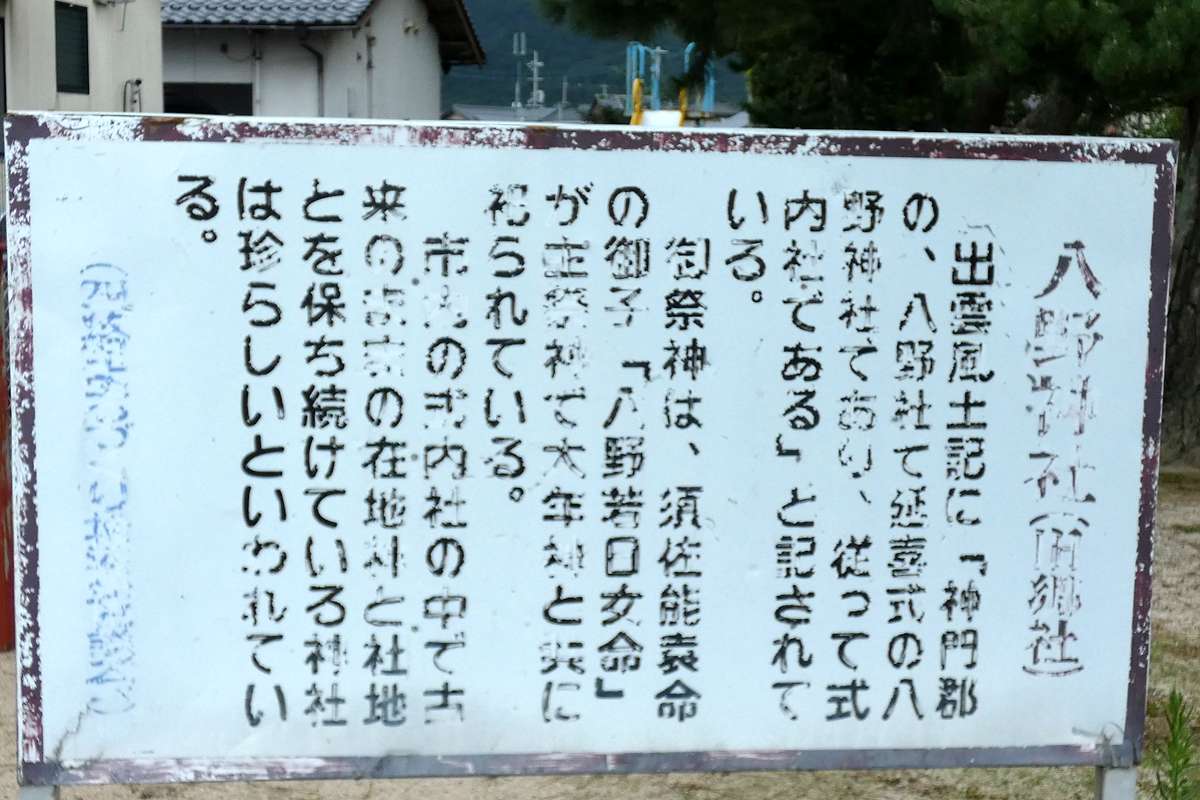 八野神社(旧郷社)
出雲風土記に「神門郡
の、八野社て延喜式の八
野神社であり、従って式
内社である」と記されて
いる。
御祭神は、須佐能袁命
の御子「八野若日女命」
が主祭神で大年神と共に
祀られている。
市内の式内社の中で古
来の の在地神と社地
とを保ち続けている神社
は珍らしいといわれてい
る。